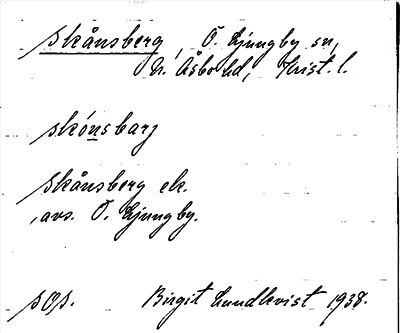 Skånsberg, Ö. Ljungby sn,
N. Åsbo hd, Krist. l.
skónsbarj
Skånsberg ek.
, avs. Ö. Ljungby.
sOs.
Birgit Lundkvist 1938.